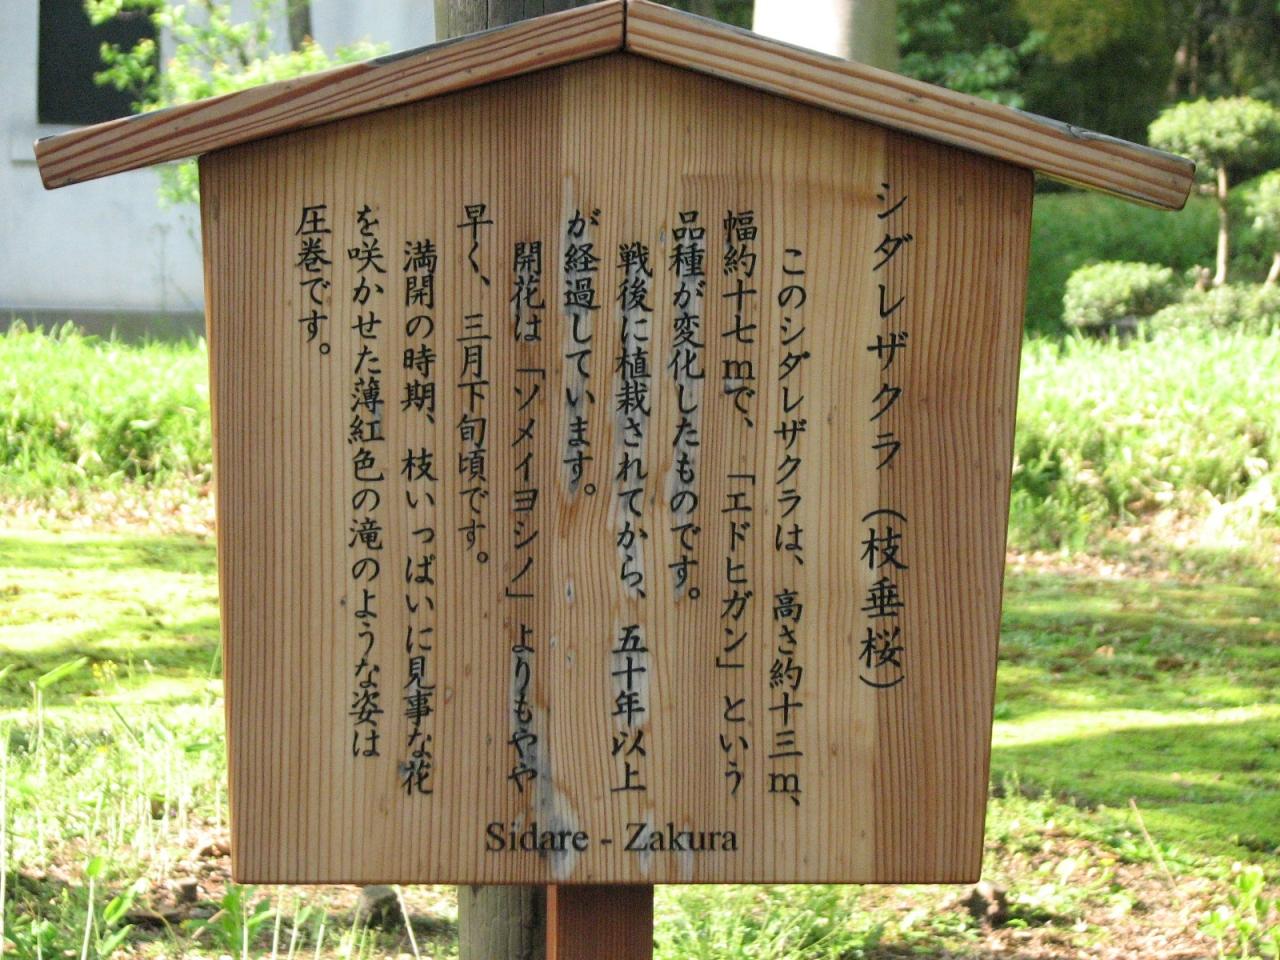 シダレザクラ（枝垂桜）
このシダレザクラは、高さ約十三ｍ、
幅約十七ｍで、「エドヒガン」という
品種が変化したものです。
戦後に植栽されてから、五十年以上
が経過しています。
開花は「ソメイヨシノ」よりもやや
早く、三月下旬頃です。
満開の時期、枝いっぱいに見事な花
を咲かせた薄紅色の滝のような姿は
圧巻です。
Sidare - Zakura